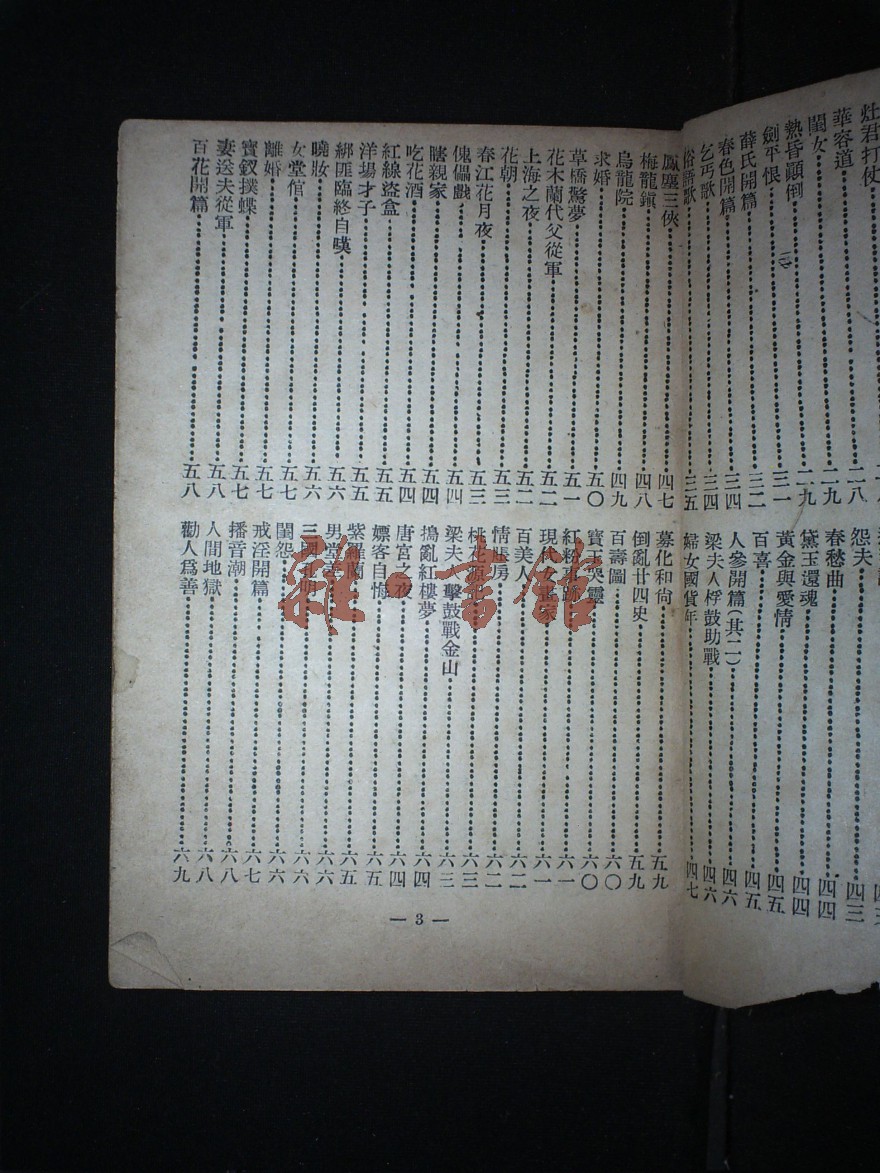 灶君打仗
華容道……二八
閨女……二九
熱昏顚倒……二九
劍平恨……三一
薛氏開篇……三二
春色開篇……三四
乞丐歌……三四
俗語歌……三五
怨夫……四三
春愁曲……四四
黛玉還魂……四四
黃金與愛情……四五
百喜……四五
人參開篇(其二)……四六
梁夫人桴鼓助戰……四六
婦女國貨年……四七
風塵三俠……四七
梅龍鎭……四八
烏龍院……四九
求婚……五〇
草橋驚夢……五一
花木蘭代父從軍……五二
上海之夜……五二
花朝……五三
春江花月夜……五三
傀儡戲……五四
瞎親家……五四
吃花酒……五四
紅線盜盒……五五
洋場才子……五五
綁匪臨終自嘆……五六
曉妝……五六
女堂倌……五七
離婚……五七
寶釵撲蝶……五七
妻送夫從軍……五八
百花開篇……五八
募化和尙……五九
倒亂廿四史……五九
百壽圖……六〇
寶玉哭靈……六〇
紅粉事跡……六一
現代女畫家……六一
百美人……六二
情賬房……六二
桃花源記……六三
梁夫人擊鼓戰金山……六三
搗亂紅樓夢……六四
唐宮之夜……六四
嫖客自悔……六五
紫羅蘭……六五
男堂……六六
三國孔明……六六
閨怨……六六
戒淫開篇……六七
播音潮……六八
人間地獄……六八
勸人爲善……六九
— 3 —
雜·書館